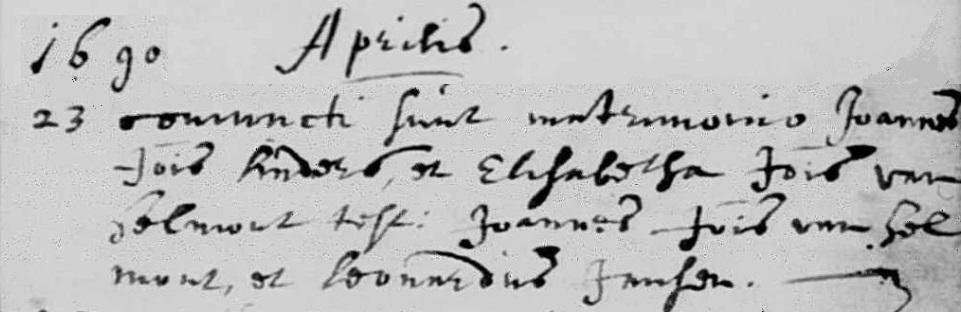 1690 Aprilis.
23 coniuncti sunt matrimonio Joannes
Jois Linders, et Elisabetha Jois van
Helmont test: Joannes Jois van Hel
mont, et Leonardus Jansen.